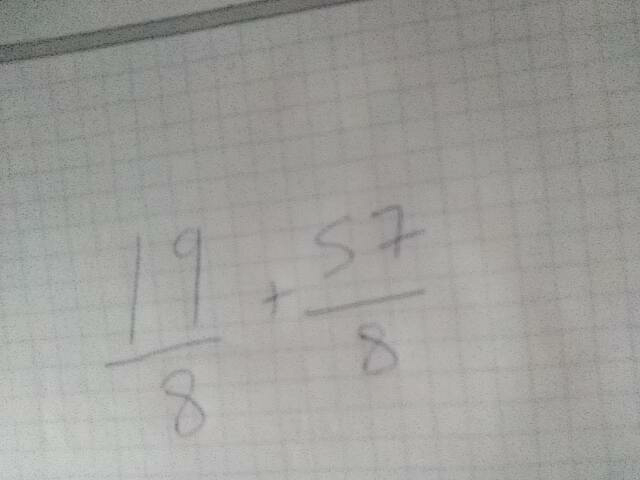 19/8 + 57/8